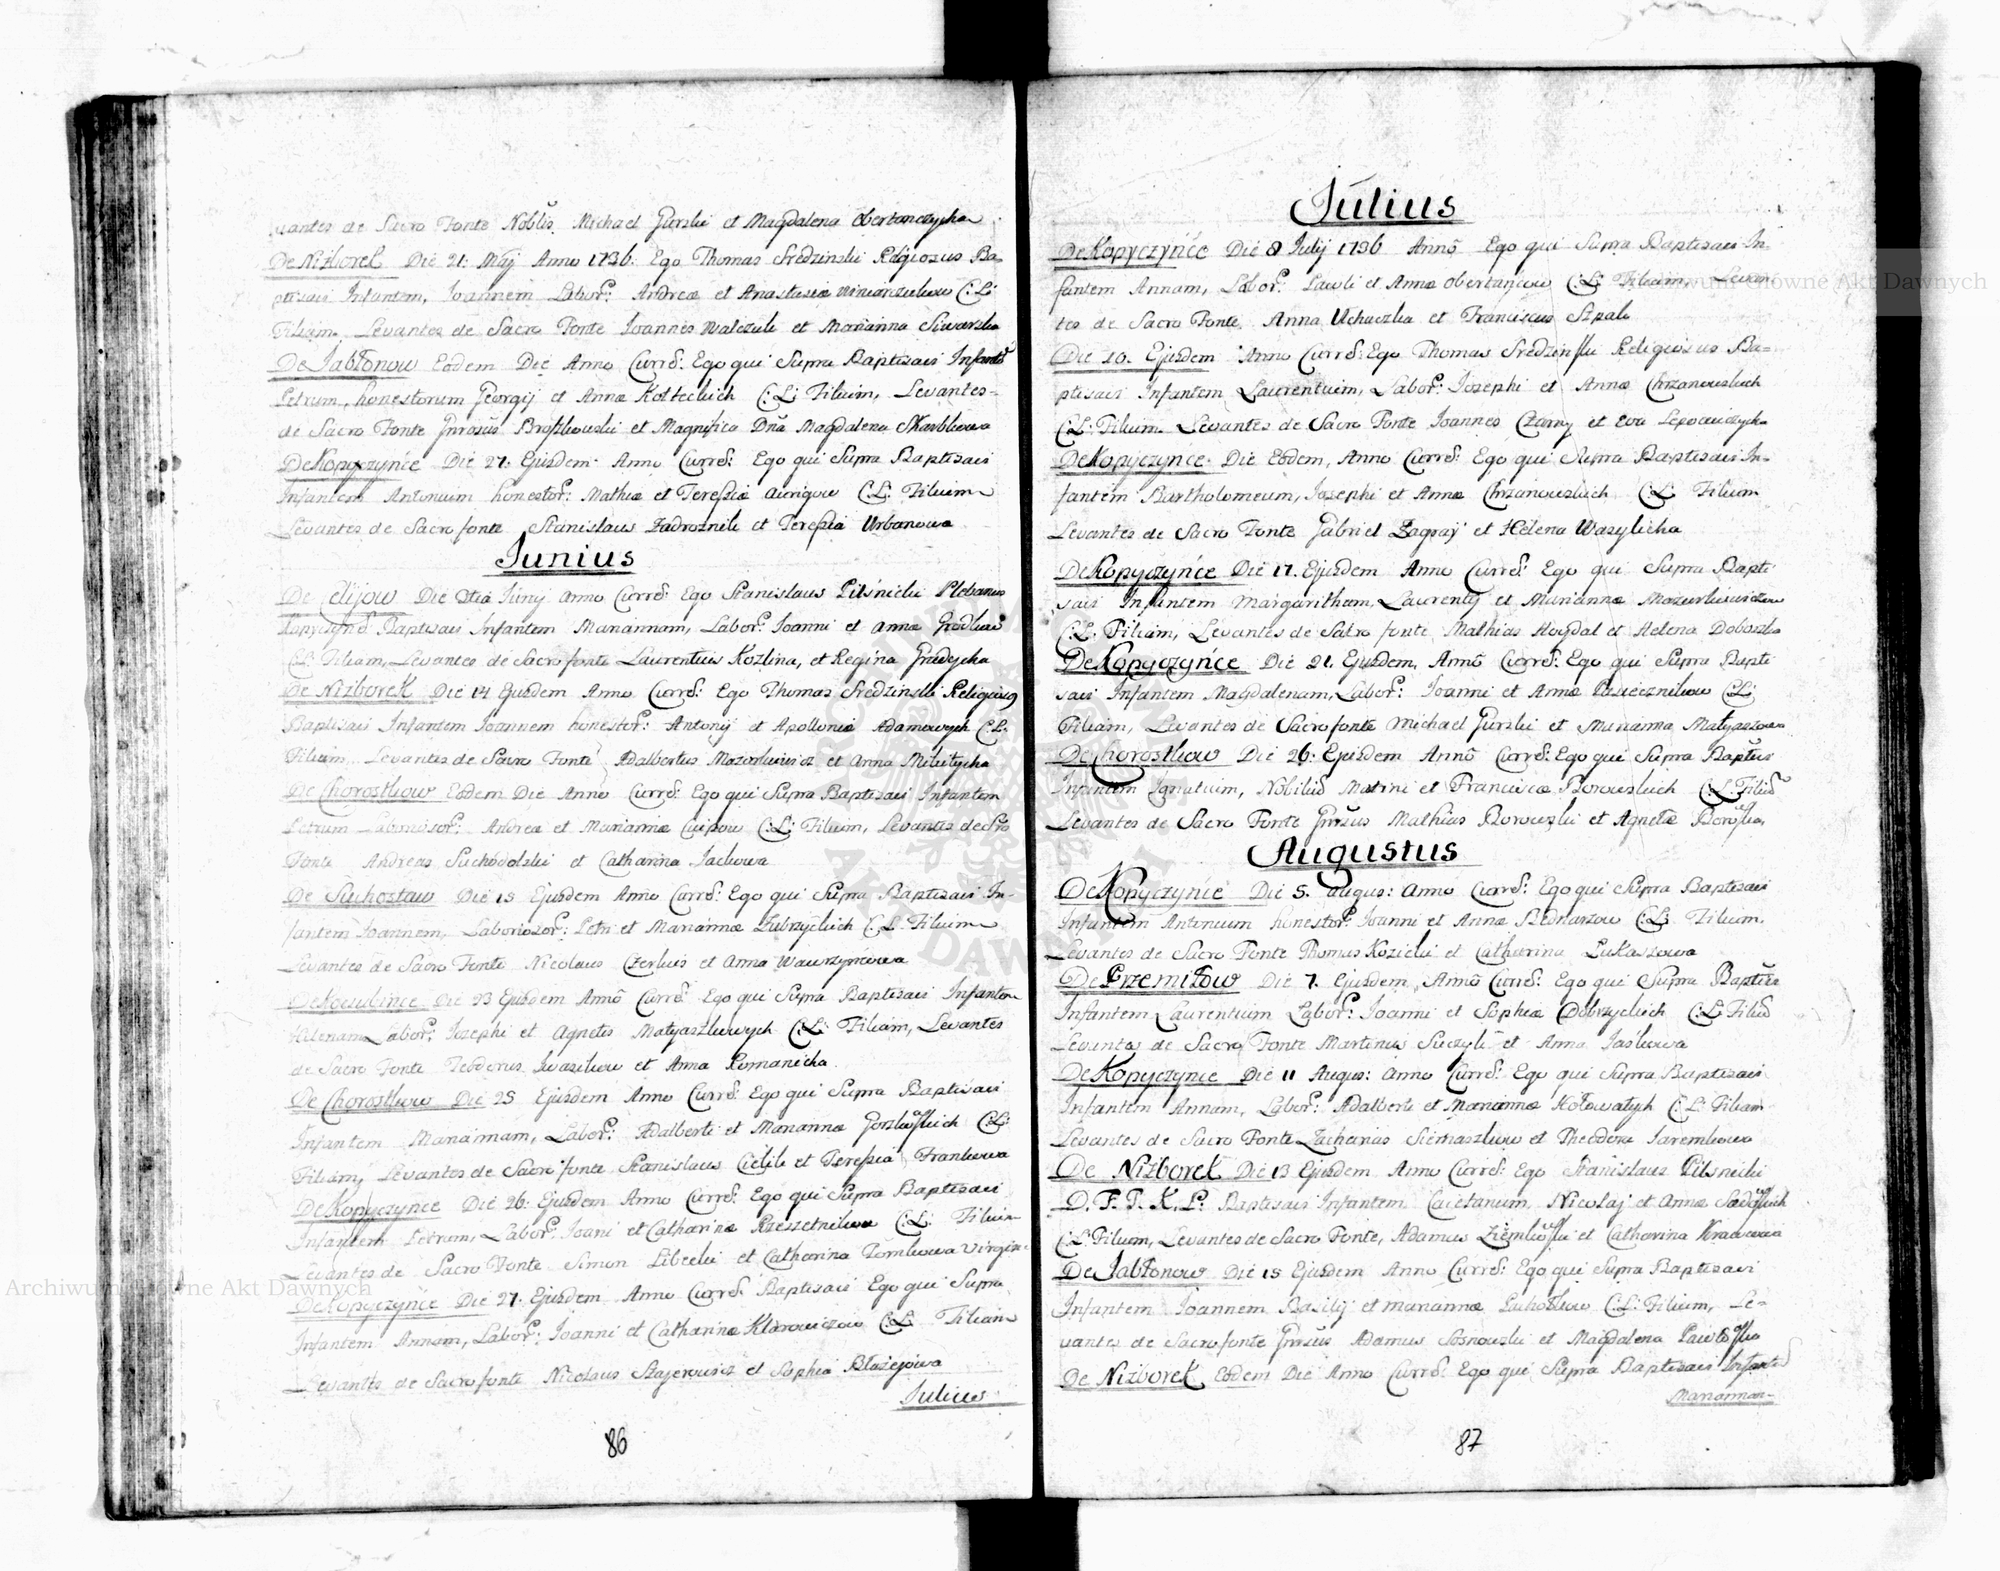 vantes de Sacro Fonte Nobĺis Michael Gurski et Magdalena Obertanczycha
De Niżborek Die 21. Maij Anno 1736. Ego Thomas Sredzinski Religiosus Ba-
ptisavi Infantem, Joannem Labor: Andreæ et Anastasiæ C: L:
Filium, Levantes de Sacro Fonte Joannes Walczuk et Marianna Siwarska
De Jabłonow Eodem Die Anno Curr: Ego qui Supra Baptisavi Infant
Petrum, honestorum Georgij et Annæ Kołteckich C: L: Filium, Levantes
de Sacro Fonte Gnrosus Broszkowski et Magnifica Dna Magdalena Skarbkowa
De Kopyczyńce Die 27. Ejusdem Anno Curr: Ego qui Supra Baptisavi
Infantem Antonium honestor: Mathiæ et Teressiæ C: L: Filium
Levantes de Sacro fonte Stanislaus Zadroznik et Teressia Urbanowa
Junius
De Celijow Die 3tia Junij Anno Curr: Ego Stanislaus Pilsnicki Plebanus
Kopyczyn: Baptisavi Infantem Mariannam, Labor: Joanni et Annæ
C: L: Filiam, Levantes de Sacro fonte Laurentius Kozlina, et Regina Gredycha
De Niżborek Die 14 Ejusdem Anno Curr: Ego Thomas Sredzinski Religiosus
Baptisavi Infantem Joannem honestor: Antonij et Apolloniæ Adamowych C: L:
Filium Levantes de Sacro Fonte Adalbertus Mazurkiewicz et Anna Mikitycha
De Chorostkow Eodem Die Anno Curr: Ego qui Supra Baptisavi Infantem
Petrum Laboriosor: Andreæ et Mariannæ C: L: Filium, Levantes de Sro
Fonte Andreas Suchodolski et Catharina Jackowa
De Suchostaw Die 15 Ejusdem Anno Curr: Ego qui Supra Baptisavi In-
fantem Joannem, Laboriosor: Petri et Mariannæ Zubrzyckich C: L: Filium
Levantes de Sacro Fonte Nicolaus et Anna Wawrzynowa
De Kowalince Die 23 Ejusdem Anno Curr: Ego qui Supra Baptisavi Infantem
Helenam Labor: Josephi et Agnetis Matyaszkowych C: L: Filiam, Levantes
de Sacro Fonte Teodorus Iwasikow et Anna Romanicha.
De Chorostkow Die 25 Ejusdem Anno Curr: Ego qui Supra Baptisavi
Infantem Mariannam, Labor: Adalberti et Mariannæ C: L:
Filiam, Levantes de Sacro fonte Stanislaus Cielik et Teressia Frankowa
De Kopyczynce Die 26. Ejusdem Anno Curr: Ego qui Supra Baptisavi
Infantem Petrum, Labor: Joani et Catharinæ Rzeszetnikow C: L: Filium
Levantes de Sacro Fonte Simon Libecki et Catharina Tomkowa Virgin:
De Kopyczynce Die 27. Ejusdem Anno Curr: Baptisavi Ego qui Supra
Infantem Annam, Labor: Joanni et Catharinæ Klarowiczow C: L: Filiam
Levantes de Sacro fonte Nicolaus Szajerowicz et Sophia Błażejowa
Julius
86
Julius
De Kopyczyńce Die 8 Julij 1736 Anno Ego qui Supra Baptisavi In-
fantem Annam, Labor: Pawli et Annæ Obertancow C: L: Filiam, Levan-
tes de Sacro Fonte, Anna Uchaczka et Franciscus Szpak
Die 10. Ejusdem Anno Curr: Ego Thomas Sredzinski Religiosus Ba-
ptisavi Infantem Laurentium, Labor: Josephi et Annæ Chrzanowskich
C: L: Filium Levantes de Sacro Fonte Joannes Czarny et Eva
De Kopyczynce Die Eodem, Anno Curr: Ego qui Supra Baptisavi In-
fantem Bartholomeum, Josephi et Annæ Chrzanowskich C: L: Filium
Levantes de Sacro Fonte Gabriel Zagraj et Helena Wasylicha
De Kopyczyńce Die 17. Ejusdem Anno Curr: Ego qui Supra Bapti-
savi Infantem Margaritham, Laurentij et Mariannæ Mazurkiewiczow
C: L: Filiam, Levantes de Sacro fonte Mathias Hoydal et Helena Doboszka
De Kopyczyńce Die 21. Ejusdem, Anno Curr: Ego qui Supra Bapti-
savi Infantem Magdalenam, Labor: Joanni et Annæ Pasiecznikow C: L:
Filiam, Levantes de Sacro fonte Michael Gurski et Marianna Matyaszowa
De Chorostkow Die 26. Ejusdem Anno Curr: Ego qui Supra Baptisavi
Infantem Ignatium, Nobiliu Matini et Franciscæ Borowskich C: L: Filiu
Levantes de Sacro Fonte Gnrsus Mathias Borowski et Agneta
Augustus
De Kopyczynce Die 5. Augus: Anno Curr: Ego qui Supra Baptisavi
Infantem Antonium honestor: Joanni et Annæ Bednarzow C: L: Filium.
Levantes de Sacro Fonte Thomas Kozicki et Catharina Łukaszowa
De Przemiłow Die 7. Ejusdem, Anno Curr: Ego qui Supra Baptisavi
Infantem Laurentium Labor: Joanni et Sophiæ Dobrzyckich C: L: Filiu
Levantes de Sacro Fonte Martinus Suczyk et Anna Jaskowa
De Kopyczynce Die 11 Augus: Anno Curr: Ego qui Supra Baptisavi
Infantem Annam, Labor: Adalberti et Mariannæ Kołowatych C: L: Filiam
Levantes de Sacro Fonte Zacharias Siemaszkow et Theodora Jaremkowa
De Niżborek Die 13 Ejusdem Anno Curr: Ego Stanislaus Pilsnicki
D. F. P. K. P. Baptisavi Infantem Caietanum, Nicolaj et Annæ
C: L: Filium, Levantes de Sacro Fonte, Adamus et Catharina
De Jabłonow Die 15 Ejusdem Anno Curr: Ego qui Supra Baptisavi
Infantem Joannem Basilij et Mariannæ C: L: Filium, Le-
vantes de Sacro fonte Gnrsus Adamus Sosnowski et Magdalena
De Niżborek Eodem Die Anno Curr: Ego qui Supra Baptisavi Infante
Mariannam-
87
Archiwum Główne Akt Dawnych
Archiwum Główne Akt Dawnych